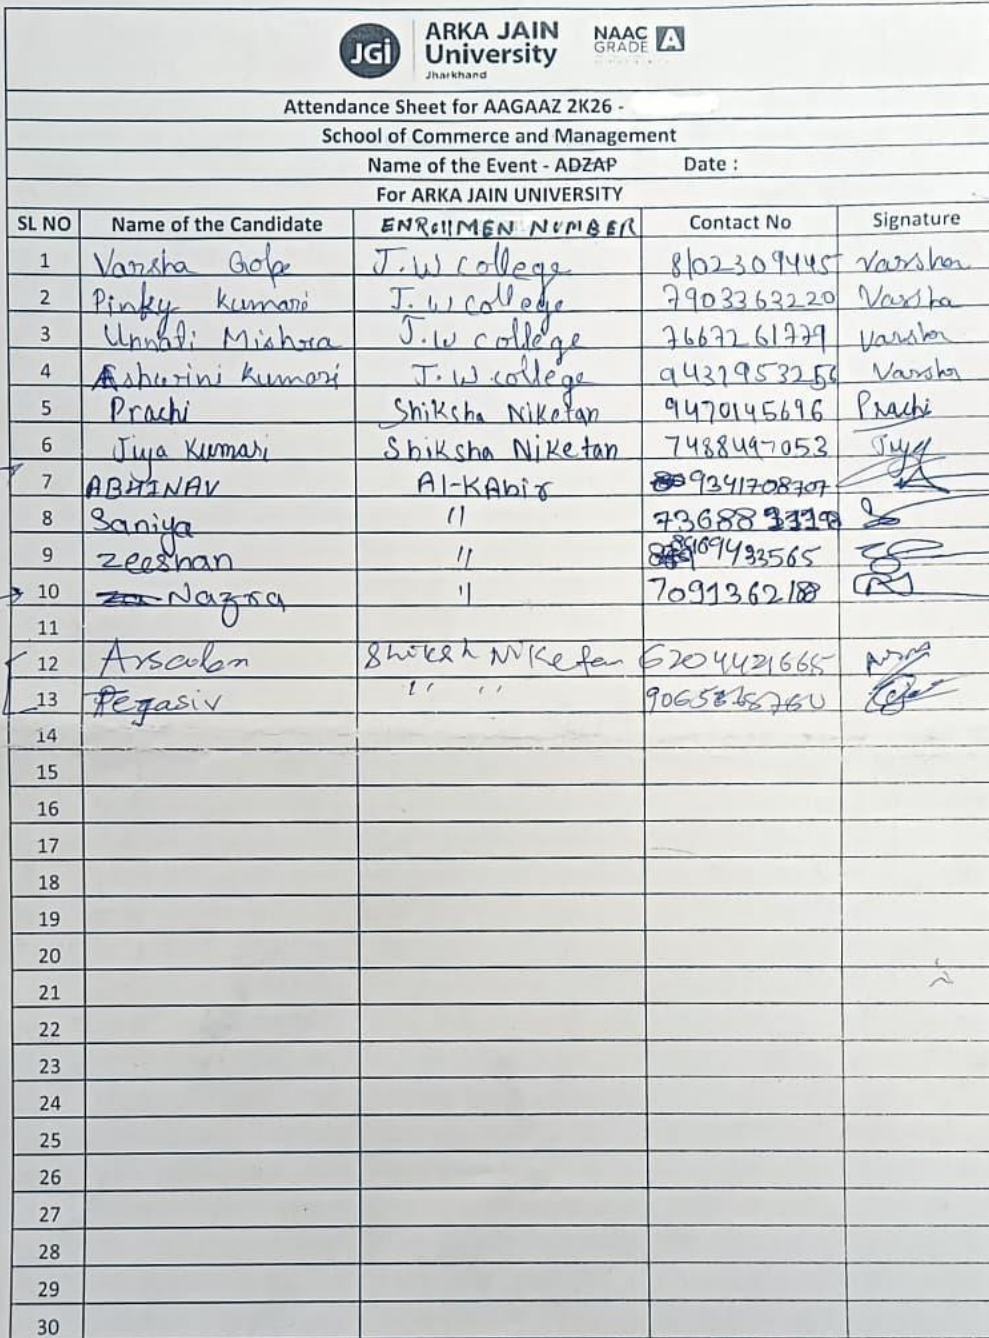 JGi
ARKA JAIN
University
Jharkhand
NAAC
GRADE A
Attendance Sheet for AAGAAZ 2K26 -
School of Commerce and Management
Name of the Event - ADZAP Date :
For ARKA JAIN UNIVERSITY
SL NO Name of the Candidate ENROllMEN NUMBER Contact No Signature
1 Varsha Gope J.W college 8102309445 Varsha
2 Pinky Kumari J.W college 7903363220 Varsha
3 Unnati Mishra J.W college 7667261779 varsha
4 Ashwini Kumari J.W college 9431953256 Varsha
5 Prachi Shiksha Niketan 9470145696 Prachi
6 Jiya Kumari Shiksha Niketan 7488497053 Jiya
7 ABHINAV Al-KAbir 9341708707
8 Saniya "
9 zeeshan "
10 Nazra "
11
12 Arsalan Shiksh Niketan 6204421665
13 " "
14
15
16
17
18
19
20
21
22
23
24
25
26
27
28
29
30